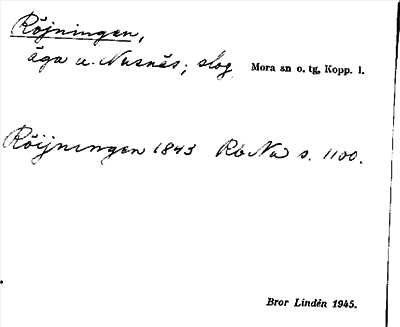 Röjningen,
äga u. Nusnäs; slog Mora sn o. tg, Kopp. l.
Röijningen 1843 Rb Nu s. 1100.
Bror Lindén 1945.